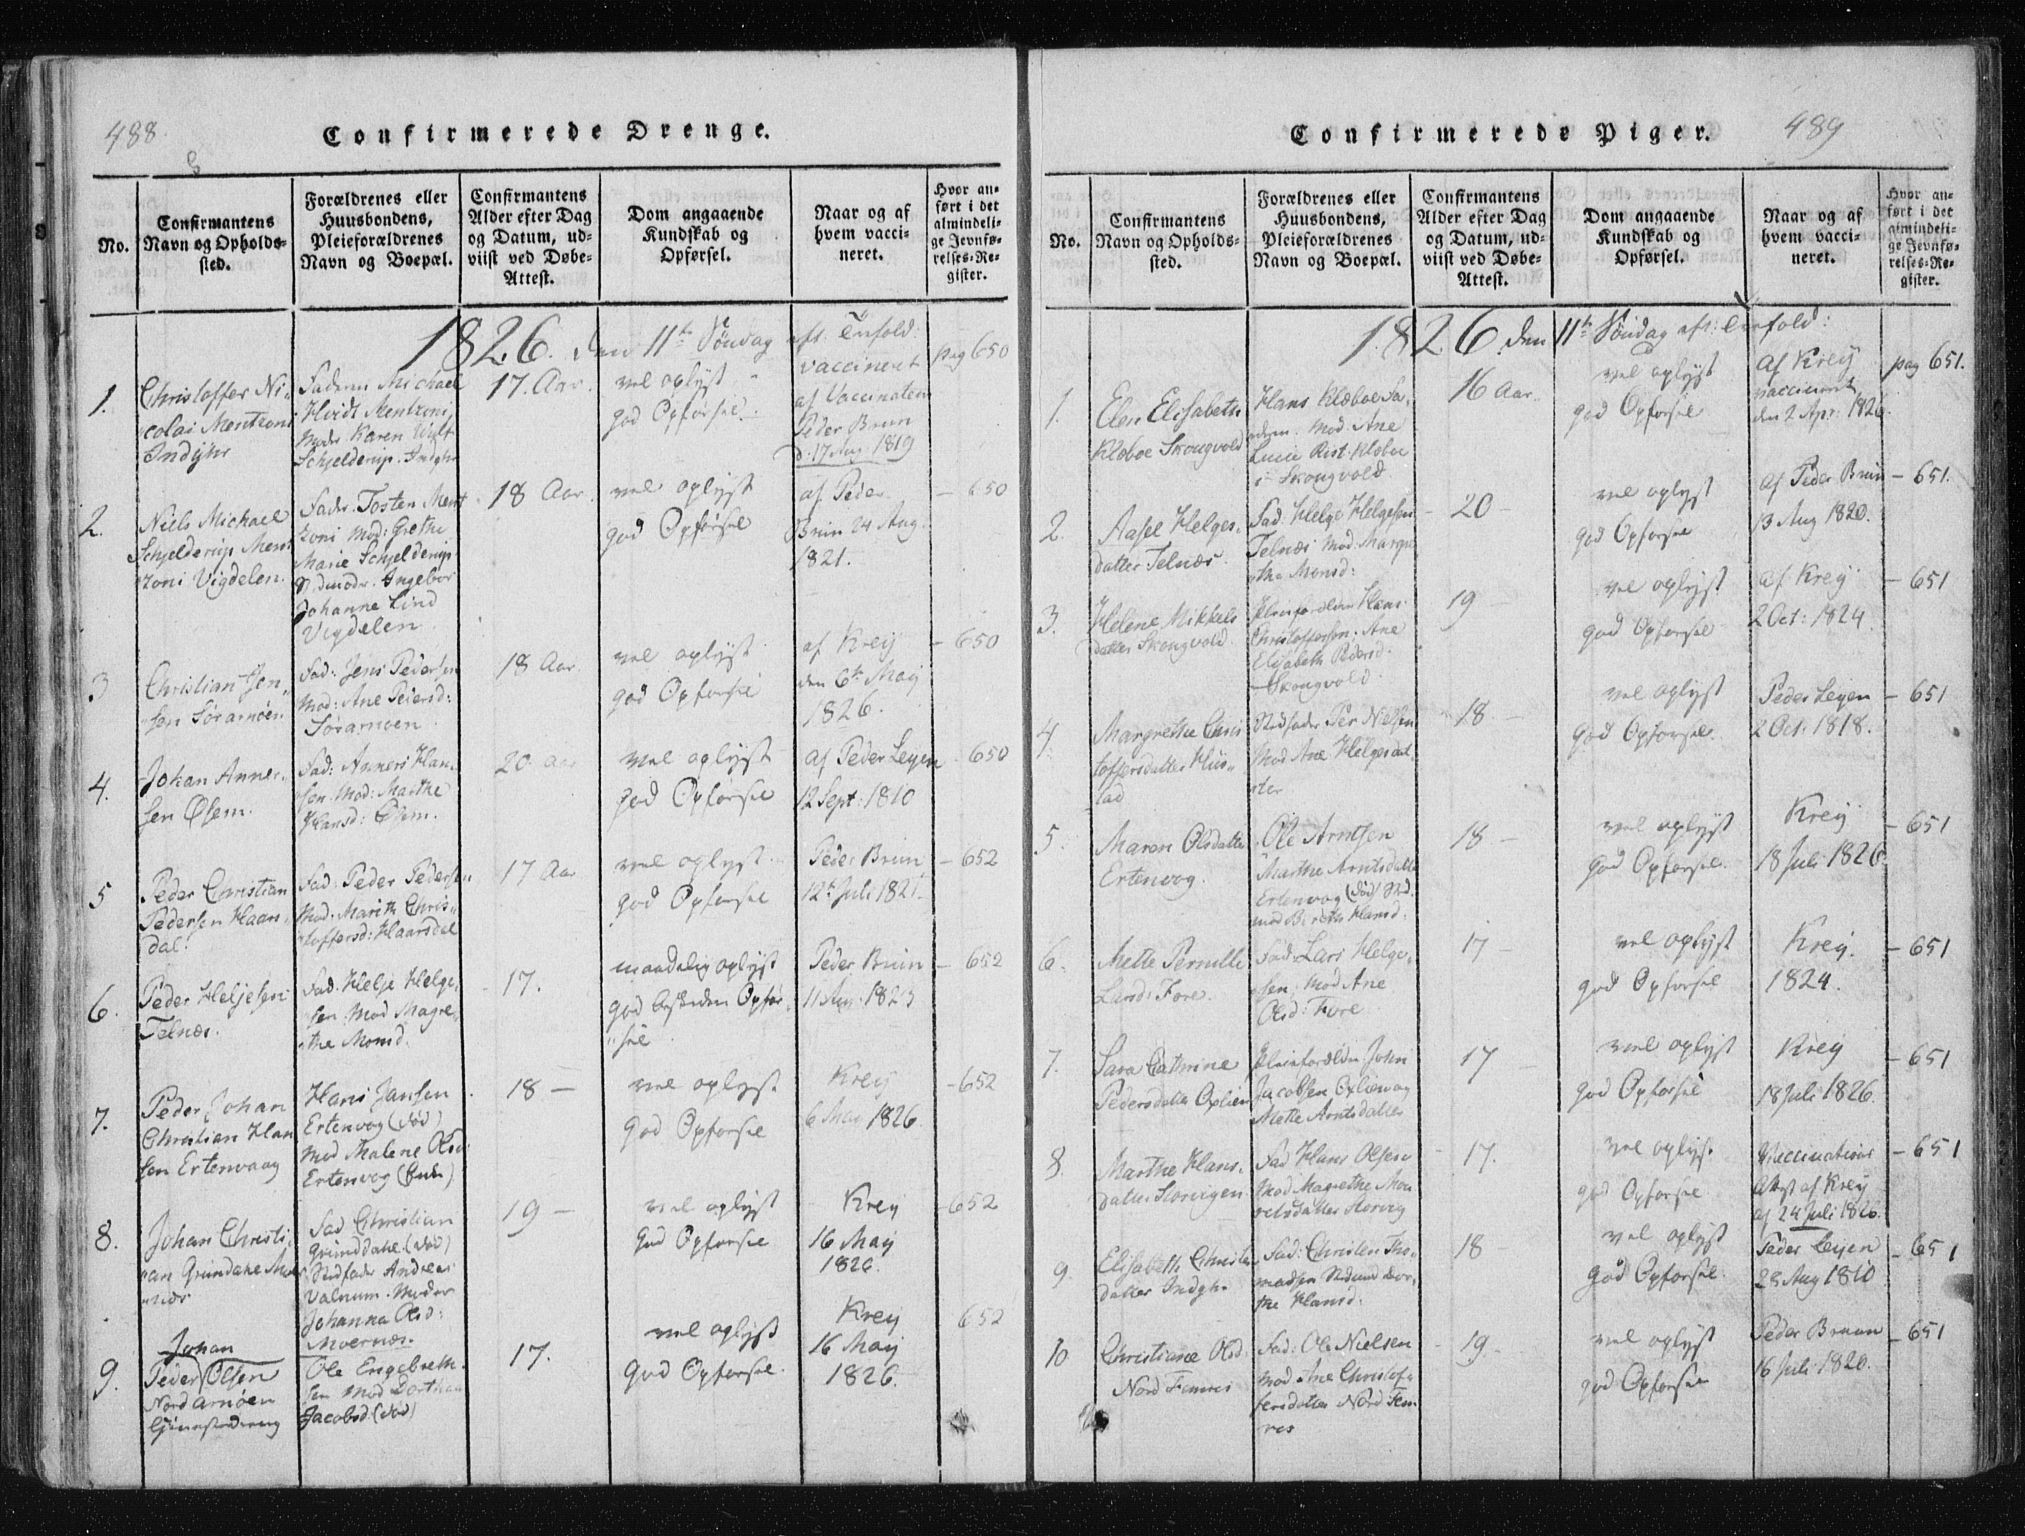 488.
Confirmerede Drenge.
No.
Confirmantens Navn og Opholds-sted.
Forældrenes eller Huusbondens, Pleieforældrenes Navn og Boepæl.
Confirmantens Alder efter Dag og Datum, ud-viist ved Døbe-Attest.
Dom angaaende Kundskab og Opførsel.
Naar og af hvem vacci-neret.
Hvor an-ført i det almindeli-ge Jevnfø-relses-Re-gister.
1826. den 11te Søndag aft. Trefold:
1.
Christoffer Ni-
colai Mentzoni
Indÿhr
Faderen Michael
Hvidt Mentzoni,
Moder Karen
Schjelderup. Indÿhr
17. Aar.
vel oplyst
god Opførsel.
vaccineret
af Vaccinateur
Peder Brun
d. 17 Aug. 1819
pag 650
2.
Niels Michael
Schjelderup Ment
zoni Vigdelen.
Fader. Tosten Ment
zoni Mod: Grethe
Marie Schjelderup
Ingebor
Johanne Lind
Vigdelen
18 Aar.
vel oplyst
god Opførsel
af Peder
Brun 24 Aug.
1821.
- 650
3
Christian Jen-
sen Sørarnøen
Fad: Jens Pedersen
Mod: Ane Pedersd:
Sørarnøen
18 Aar
vel oplyst
god Opførsel
af Kreÿ
den 6te Maÿ
1826.
- 650
4.
Johan Anner-
sen Øsem.
Fad: Anners Han-
sen. Mod: Marthe
Hansd: Øsem.
20 Aar
vel oplyst
god Opførsel
af Peder Leyen
12 Sept: 1810
650
5
Peder Christian
Pedersen Haars-
dal.
Fad: Peder Pedersen
Mod: Marith Chris-
toffersd: Haarsdal
17 Aar
vel oplyst
god Opførsel
Peder Brun
12te Juli 1821.
- 652
6.
Peder Heljesen
Telnæs.
Fad. Helje Helge-
sen Mod Magre-
the Monsd.
17.
maadelig oplyst
god beskeden Opfør-
sel
Peder Brun
11 Aug: 1823
- 652
7.
Peder Johan
Christian Han
sen Ertenvaag
Hans Jansen
Ertenvog (død)
Mod Malene Olsd
Ertenvog (Enke)
18 -
vel oplyst
god Opførsel
Kreÿ
6 Maÿ 1826.
- 652
8.
Johan Christi-
an Grunddahl
Fad Christian
Grunddahl. (død)
Stedfader Andreas
Valnum. Moder
Johanna Olsd:
Moernæs.
19 -
vel oplyst
god Opførsel
Kreÿ
16 Maÿ
1826.
- 652
9.
Johan
Peder Olsen
Nord Arnøen
Ole Engebreth-
sen Mod Dorthea
Jacobsd. (død)
17.
vel oplyst
god Opførsel.
Kreÿ
16 Maÿ
1826.
652
489
Confirmerede Piger.
No.
Confirmantens Navn og Opholds-sted.
Forældrenes eller Huusbondens, Pleieforældrenes Navn og Boepæl.
Confirmantens Alder efter Dag og Datum, ud-viist ved Døbe-Attest.
Dom angaaende Kundskab og Opførsel.
Naar og af hvem vacci-neret.
Hvor an-ført i det almindeli-ge Jevnfø-relses-Re-gister.
1826. den 11te Søndag aft: Trefold:
1.
Elen Elisabeth
Kløboe Skongvold
Hans Kløboe Fa-
deren. Mod: Ane
Lucie Rist. Kløboe
i Skongvold
16 Aar.
vel oplyst
god Opførsel
af Kreÿ
vaccineret
den 2 Apr: 1826.
pag 651.
2.
Aasel Helges-
datter Telnæs.
Fad. Helge Helgesen
Telnæs Mod: Margre
the Monsd:
- 20 -
vel oplyst
god Opførsel
af Peder Brun
13 Aug 1820.
- 651.
3.
Helene Mikkels
datter Skongvold
Pleieforældre Hans
Christoffersen. Ane
Elisabeth Pedersd.
Skongvold.
19 -
vel oplyst
god Opførsel
af Kreÿ
2 Oct: 1824.
- 651
4.
Margrethe Chris
toffersdatter Hus-
tad
Stedfader Per Nielsen
Mod Ane Helgesdat
ter
- 18. -
vel oplyst
god Opførsel.
Peder Leyen
2 Oct: 1818.
- 651
5.
Maren Olsdatter
Ertenvog.
Ole Arntsen
Marthe Arntsdatter
Ertenvog (død) Sted
mod Bereth Hansd:
18 -
vel oplyst
god Opførsel.
Kreÿ
18 Juli 1826.
- 651
6.
Mette Pernille
Larsd: Fore.
Fad: Lars Helge-
sen; Mod Ane
Olsd: Fore
17 -
vel oplyst
god Opførsel
Kreÿ.
1824.
- 651
7.
Sara Cathrine
Pedersdatter
Pleieforældre John
Jacobsen
Mette Arntsdatter
17
vel oplyst
god Opførsel
Kreÿ
18 Juli 1826.
- 651
8.
Marthe Hans-
datter Storvigen
Fad Hans Olsen
Mod Magrethe Mou
ridsdatter Storvig
- 17.
vel oplyst
god Opførsel
Vaccinations
Attest af Kreÿ
af 24 Juli 1826.
- 651
9.
Elisabeth Christens
datter Indÿhr
Fad: Christen Tho-
madsen Stedmod Dor-
the Hansd:
18 -
vel oplyst
god Opførsel.
Peder Leyen
28 Aug 1810
- 651
10
Christiane Olsd:
Nord Femris
Fad: Ole Nielsen
Mod Ane Christof-
fersdatter Nord Fem-
ris
- 19.
vel oplyst
god Opførsel
Peder Bruun
16 Juli 1820.
- 651